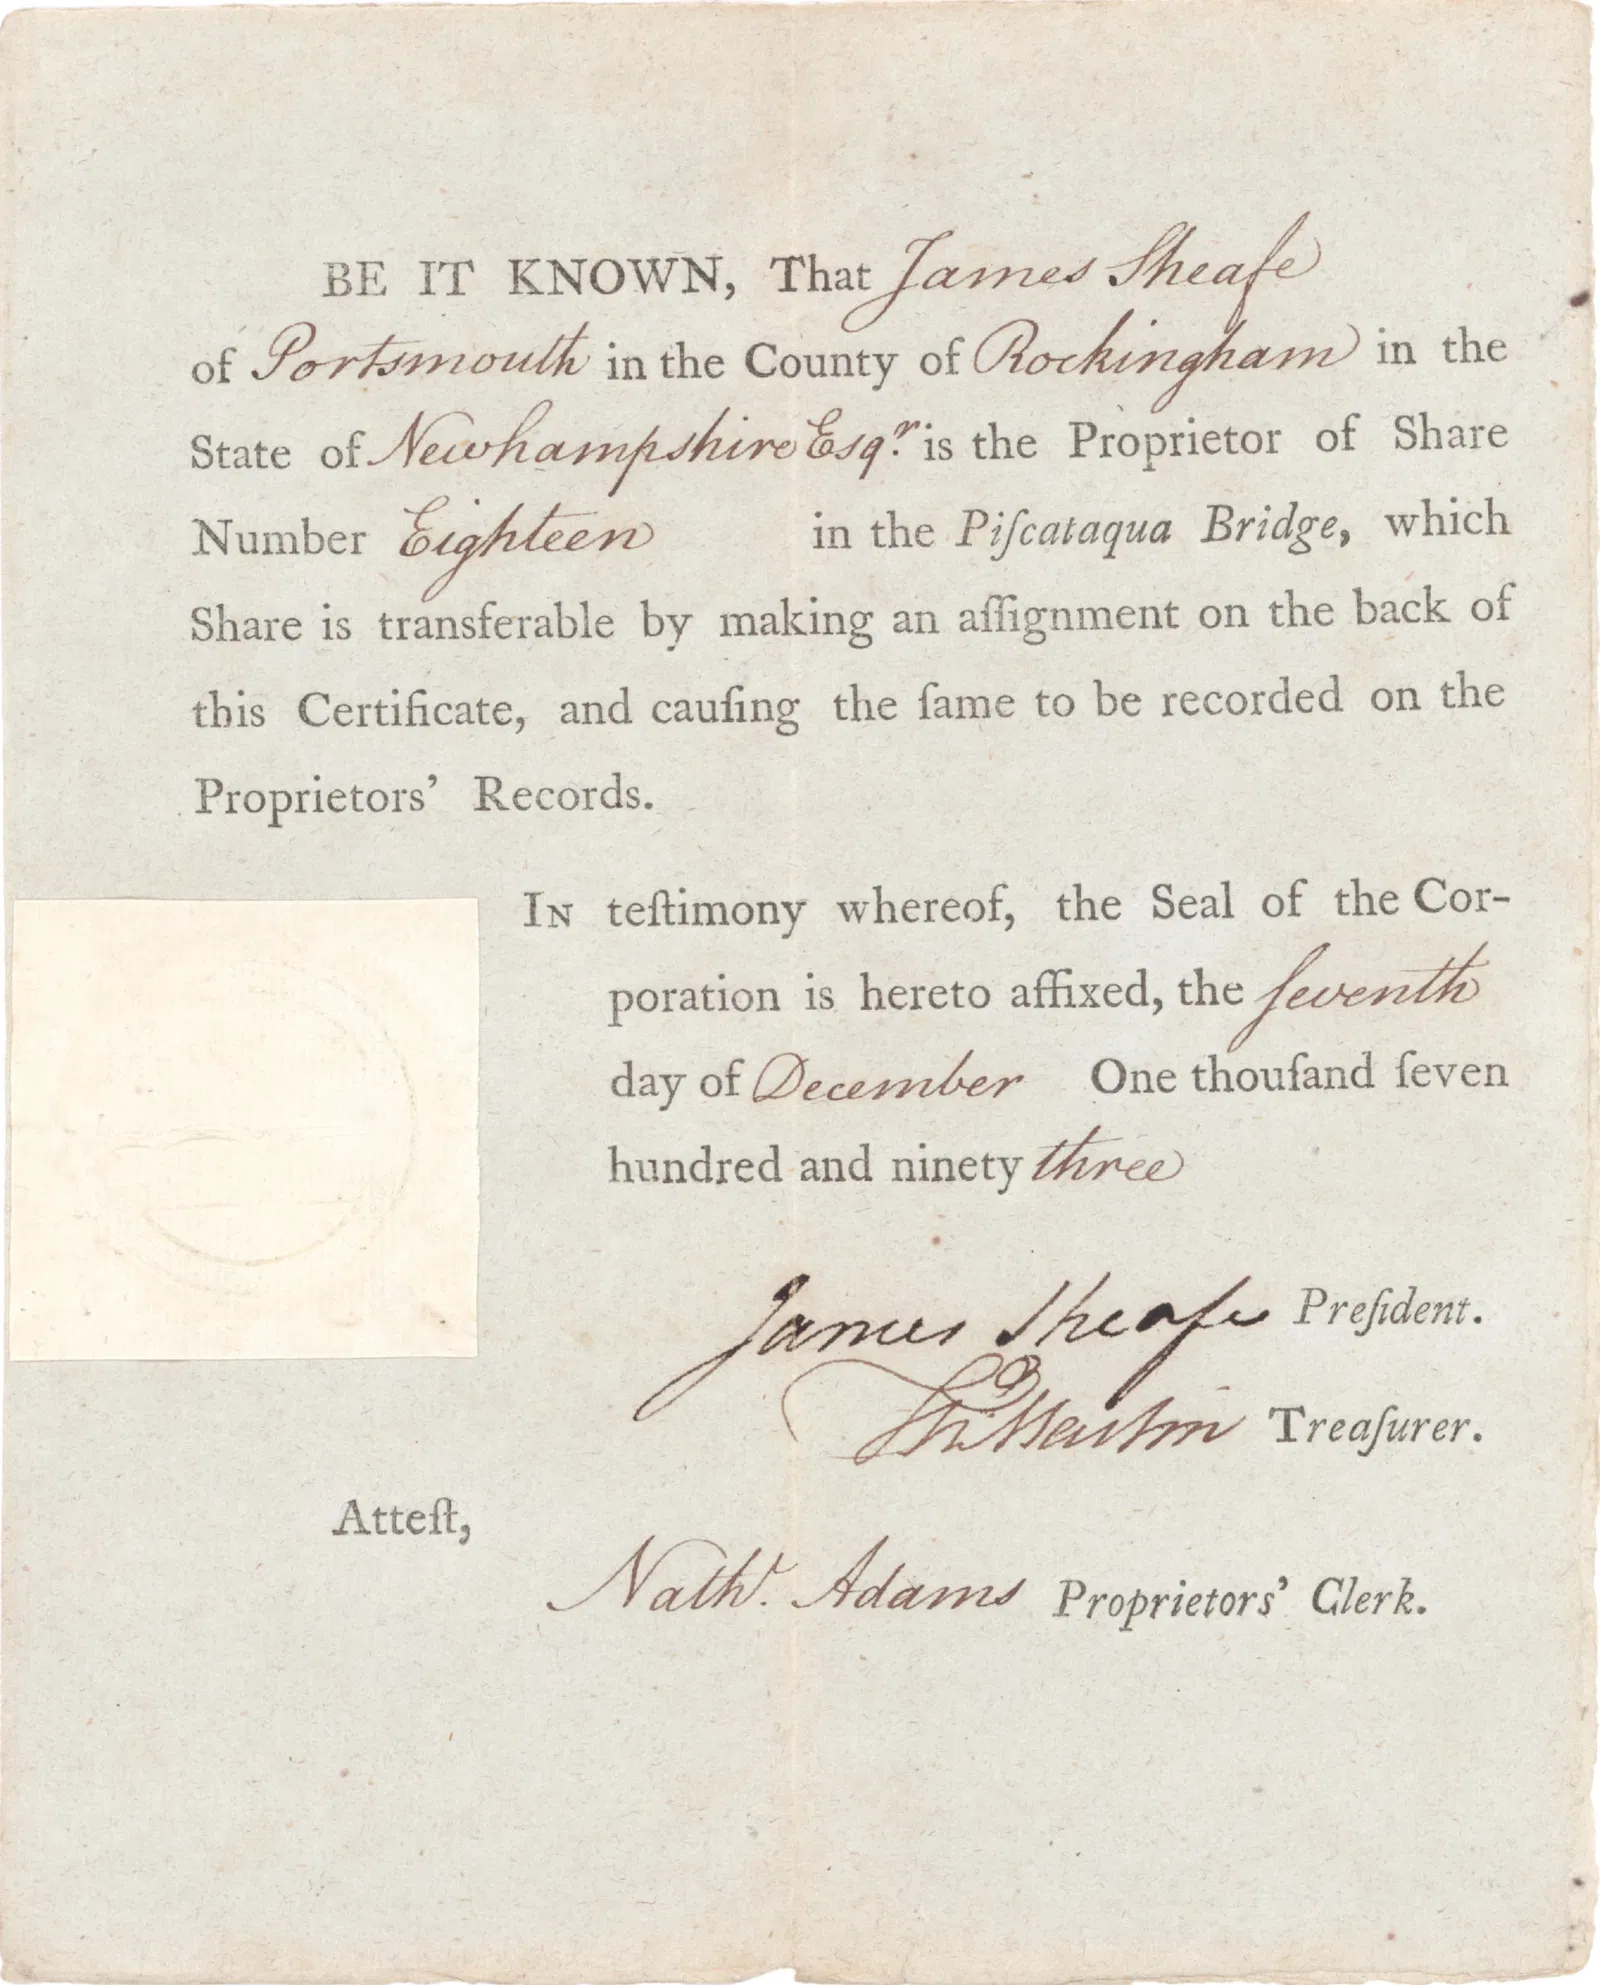 BE IT KNOWN, That James Sheafe
of Portsmouth in the County of Rockingham in the
State of Newhampshire Esqr. is the Proprietor of Share
Number Eighteen in the Piſcataqua Bridge, which
Share is transferable by making an aſſignment on the back of
this Certificate, and cauſing the ſame to be recorded on the
Proprietors’ Records.
IN teſtimony whereof, the Seal of the Cor-
poration is hereto affixed, the ſeventh
day of December One thouſand ſeven
hundred and ninety three
James Sheafe Preſident.
Treaſurer.
Atteſt,
Nathl. Adams Proprietors’ Clerk.